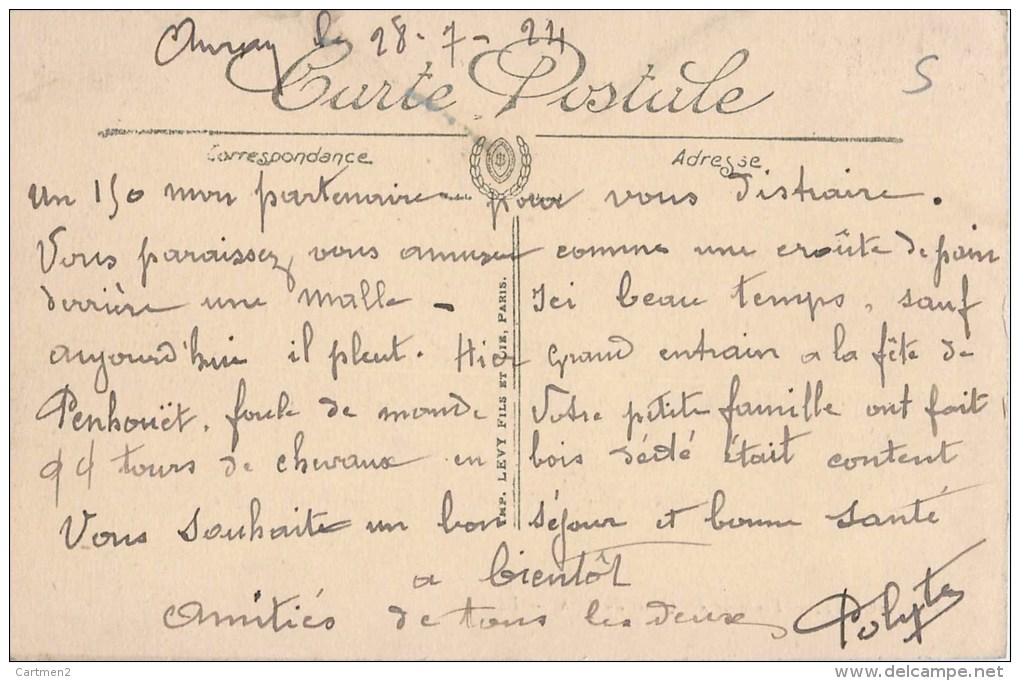 Auray le 28-7-24
5
Carte Postale
Correspondance
Adresse
un 150 mon partenaire pour vous distraire.
Vous paraissez vous amuser comme une croûte de pain
derrière une malle - Ici beau temps, sauf
aujourd'hui il pleut. Hier grand entrain a la fête de
Penhouët, foule de monde Votre petite famille ont fait
44 tours de chevaux en bois dédé était content
Vous souhaite un bon séjour et bonne santé
a bientôt
Amitiés de tous les deux
Polyte
IMP. LEVY FILS ET CIE, PARIS.
Cartmen2
www.delcampe.net